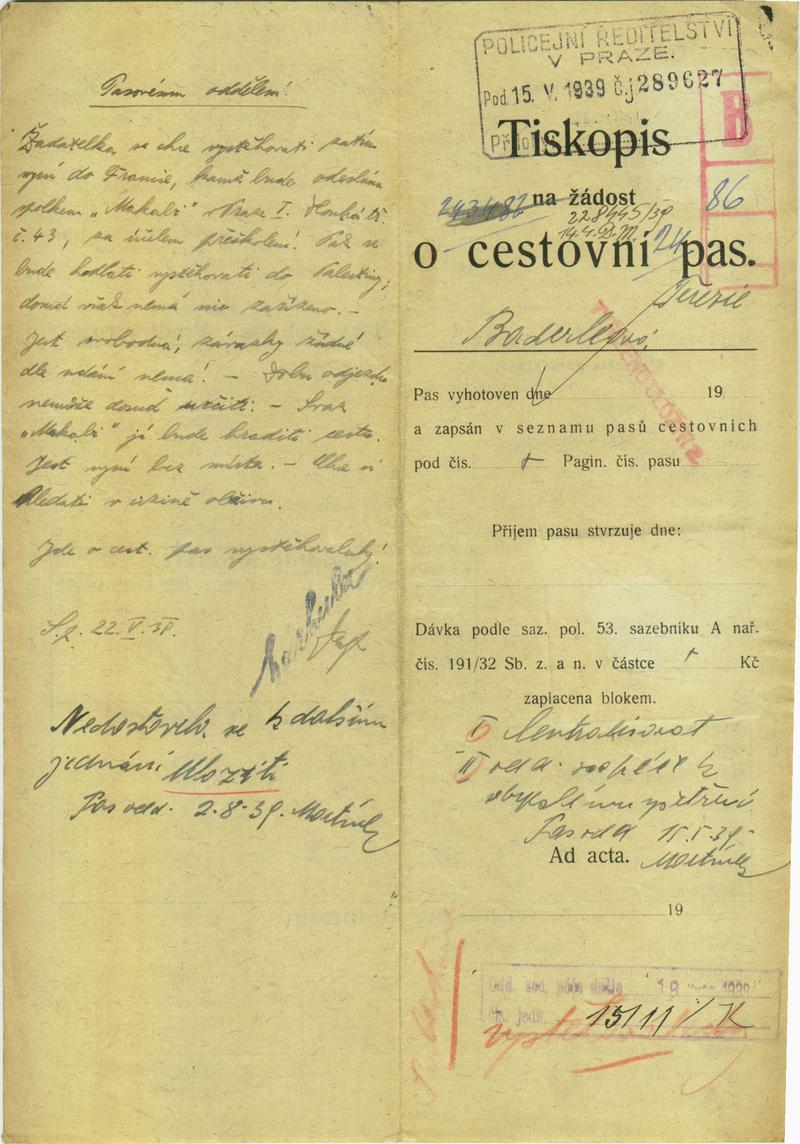 Pasovému oddělení!
Žadatelka se chce vystěhovati zatím
nyní do Francie, kamž bude odeslána
spolkem „Makabi" v Praze I. Dlouhá tř.
č. 43, za účelem přeškolení! Pak se
bude hodlati vystěhovati do Palestiny,
dosud však nemá nic zařízeno. –
Jest svobodná, závazky žádné
dle udání nemá! – Dobu odjezdu
nemůže dosud určiti. – Svaz
„Makabi" jí bude hraditi cestu.
Jest nyní bez místa. – Chce si
hledati v cizině obživu.
Jde o cest. pas vystěhovalecký!
22. V. 39.
Nedostavila se k dalšímu
jednání Uložiti
Pas odd. 2.8.39.
POLICEJNÍ ŘEDITELSTVÍ
V PRAZE.
Pod. 15. V. 1939 Č.j 289627
Tiskopis
na žádost
243482
228445/39
86
o cestovní pas.
Terezie
Baderlová
Pas vyhotoven dne 19
a zapsán v seznamu pasů cestovních
pod čís. Pagin. čís. pasu
Příjem pasu stvrzuje dne:
Dávka podle saz. pol. 53. sazebníku A nař.
čís. 191/32 Sb. z. a n. v částce Kč
zaplacena blokem.
I Centralisovat
II odd.
Pas odd 15.5.39
Ad acta.
19
15111/K